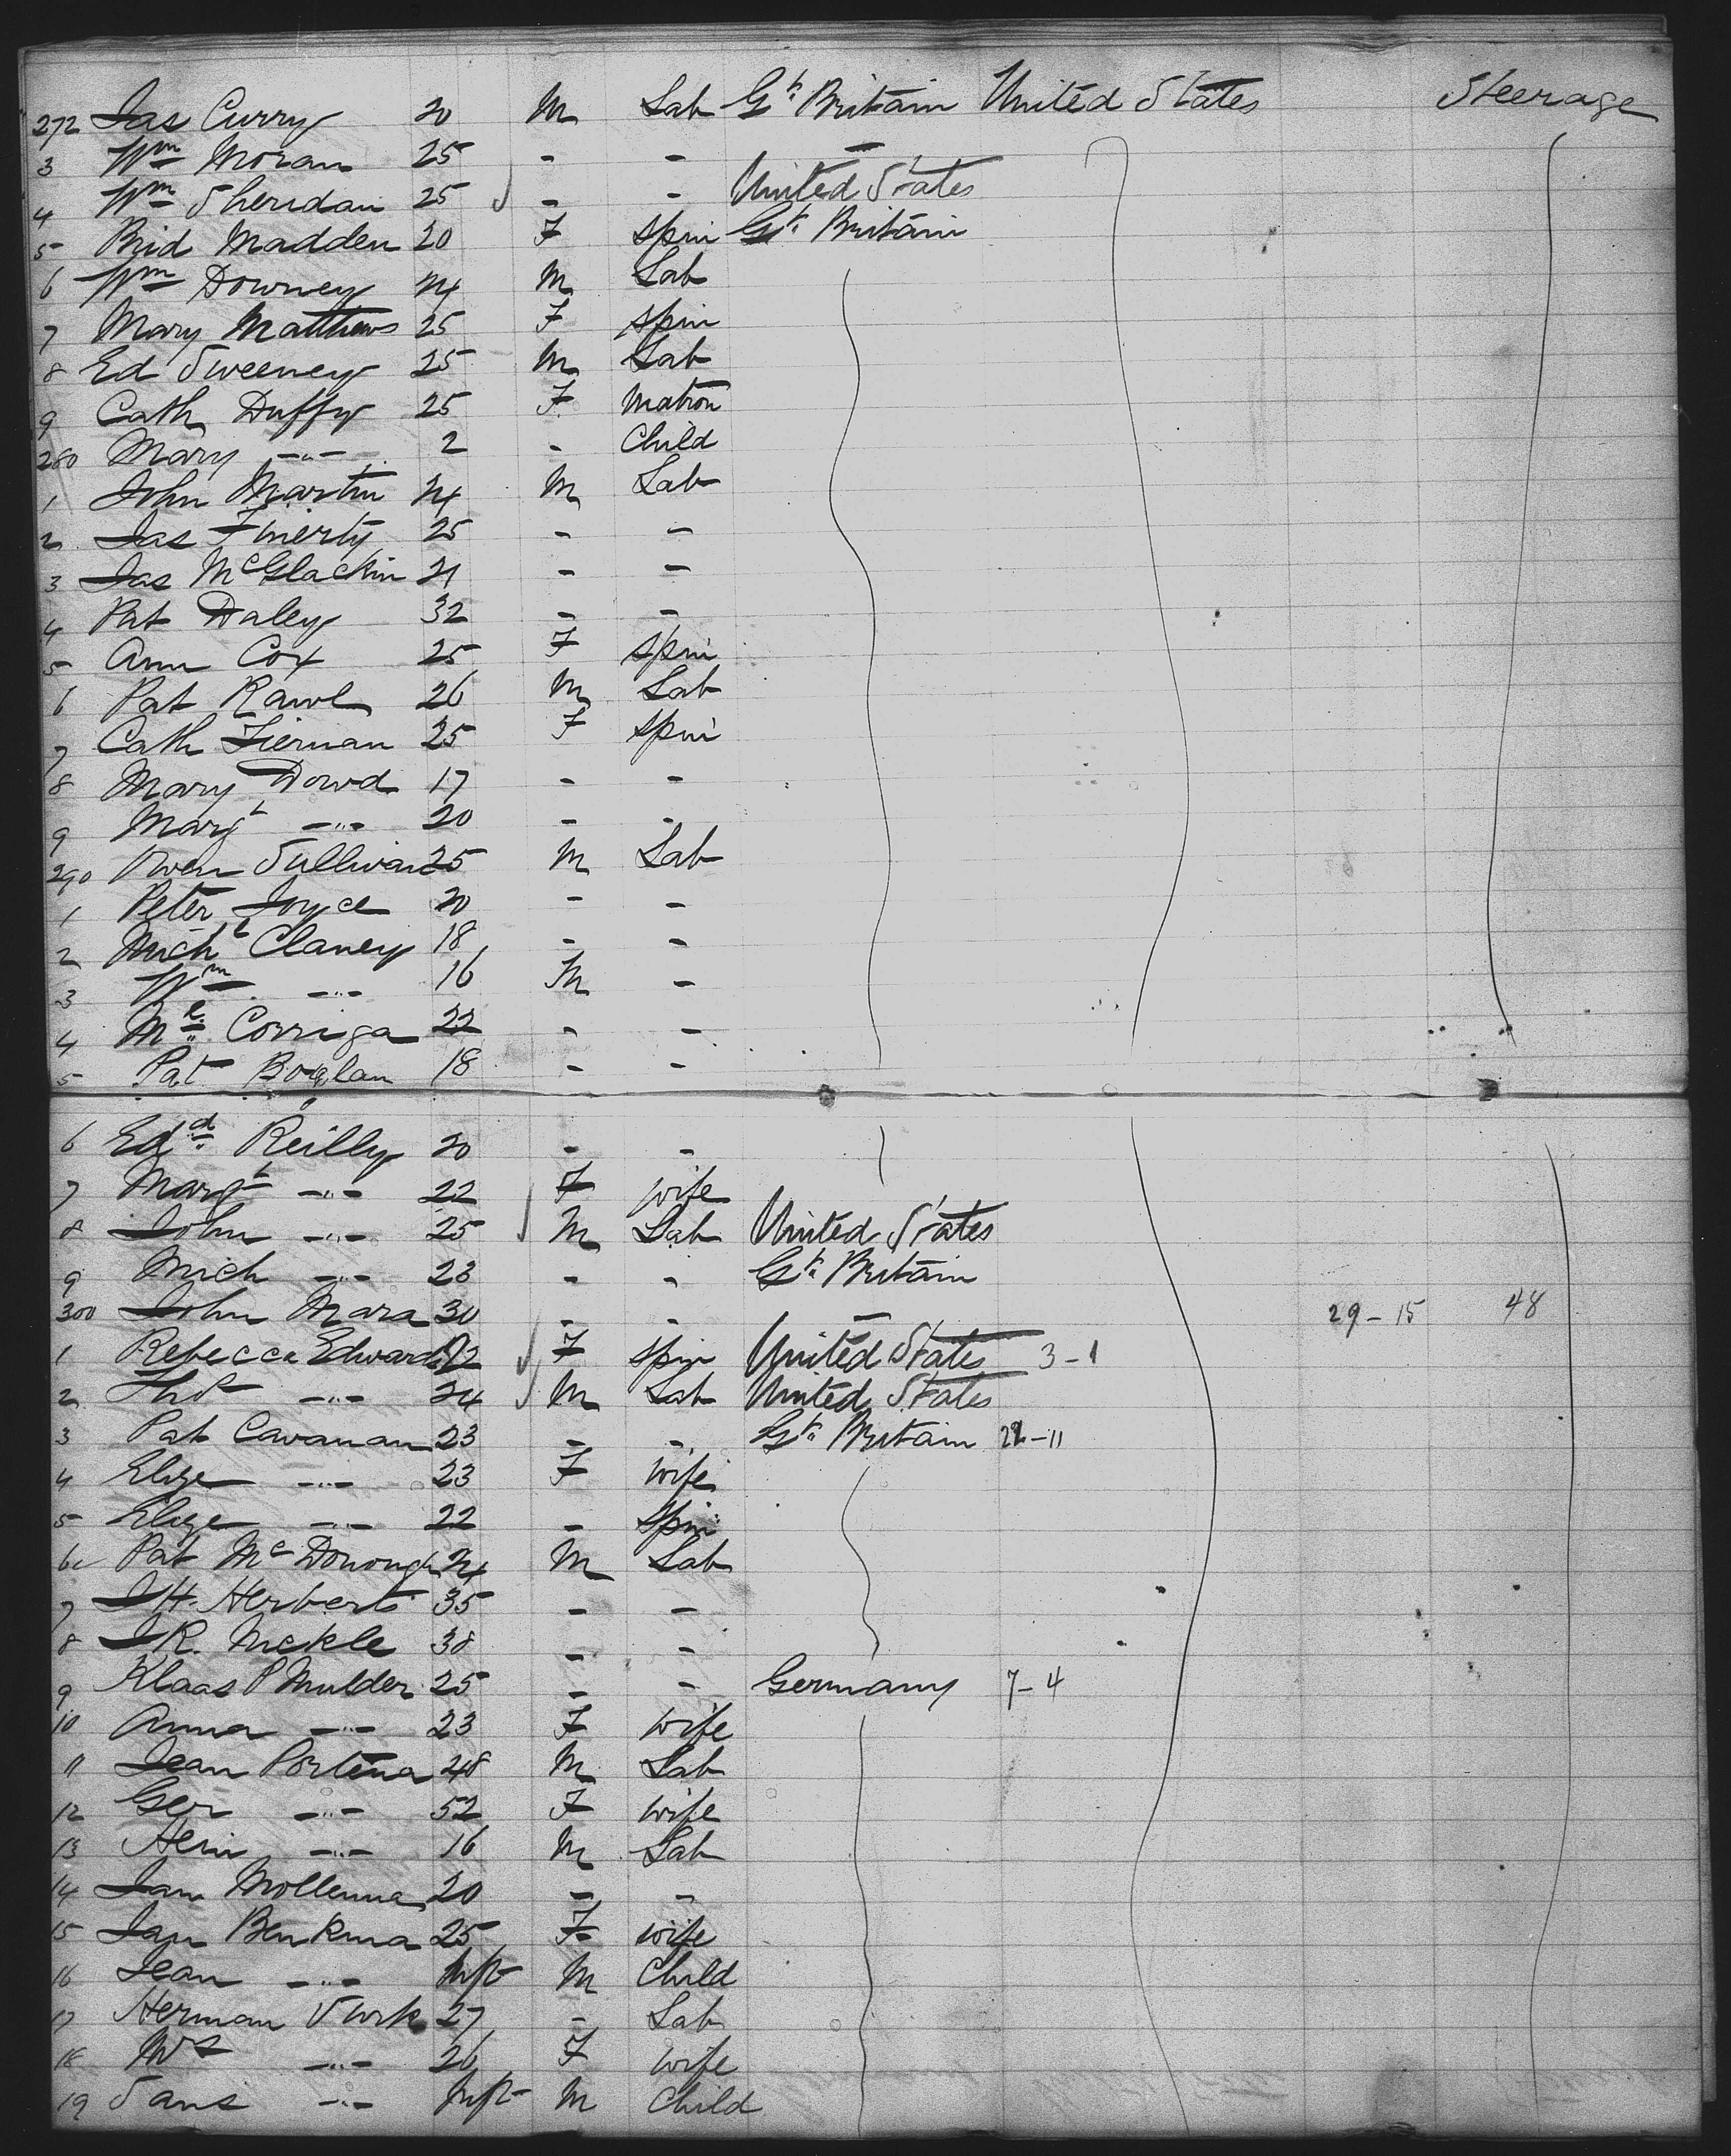 272 Jas Curry 20 M Lab Gt. Britain United States Steerage
3 Wm Moran 25 - - -
4 Wm Sheridan 25 - - United States
5 Brid Madden 20 F Spin Gt. Britain
6 Wm Downey 24 M Lab
7 Mary Matthews 25 F Spin
8 Ed Sweeney 25 M Lab
9 Cath Duffy 25 F Matron
280 Mary -"- 2 - Child
1 John Martin 24 M Lab
2 Jas Finerty 25 - -
3 Jas McGlackin 21 - -
4 Pat Daley 32 - -
5 Ann Cox 25 F Spin
6 Pat Rawl 26 M Lab
7 Cath Tiernan 25 F Spin
8 Mary Dowd 17 - -
9 Margt -"- 20 - -
290 Owen Sullivan 25 M Lab
1 Peter Joyce 20 - -
2 Michl Clancy 18 - -
3 Wm -"- 16 M -
4 Ml. Corriga 22 - -
5 Pat Boylan 18 - -
6 Edd. Reilly 20 - -
7 Margt -"- 22 F wife
8 John -"- 25 M Lab United States
9 Mich -"- 23 - - Gt. Britain
300 John Mara 30 - - - 29-15 48
1 Rebecca Edwards F Spin United States 3-1
2 Thos -"- 24 M Lab United States
3 Pat Cavanan 23 - - Gt. Britain 22-11
4 Elize -"- 23 F wife
5 Elize -"- 22 - Spin
6 Pat McDonough 24 M Lab
7 J H. Herbert 35 - -
8 J R. Mckle 38 - -
9 Klaas P Mulder 25 - - Germany 7-4
10 Anna -"- 23 F wife
11 Jean Portena 48 M Lab
12 Ger -"- 52 F wife
13 Hein -"- 16 M Lab
14 Jan Mollema 20 - -
15 Jan Benkma 25 F wife
16 Jean -"- Inft M Child
17 Herman 27 - Lab
18 Mrs -"- 26 F wife
19 Sans -"- Inft M Child